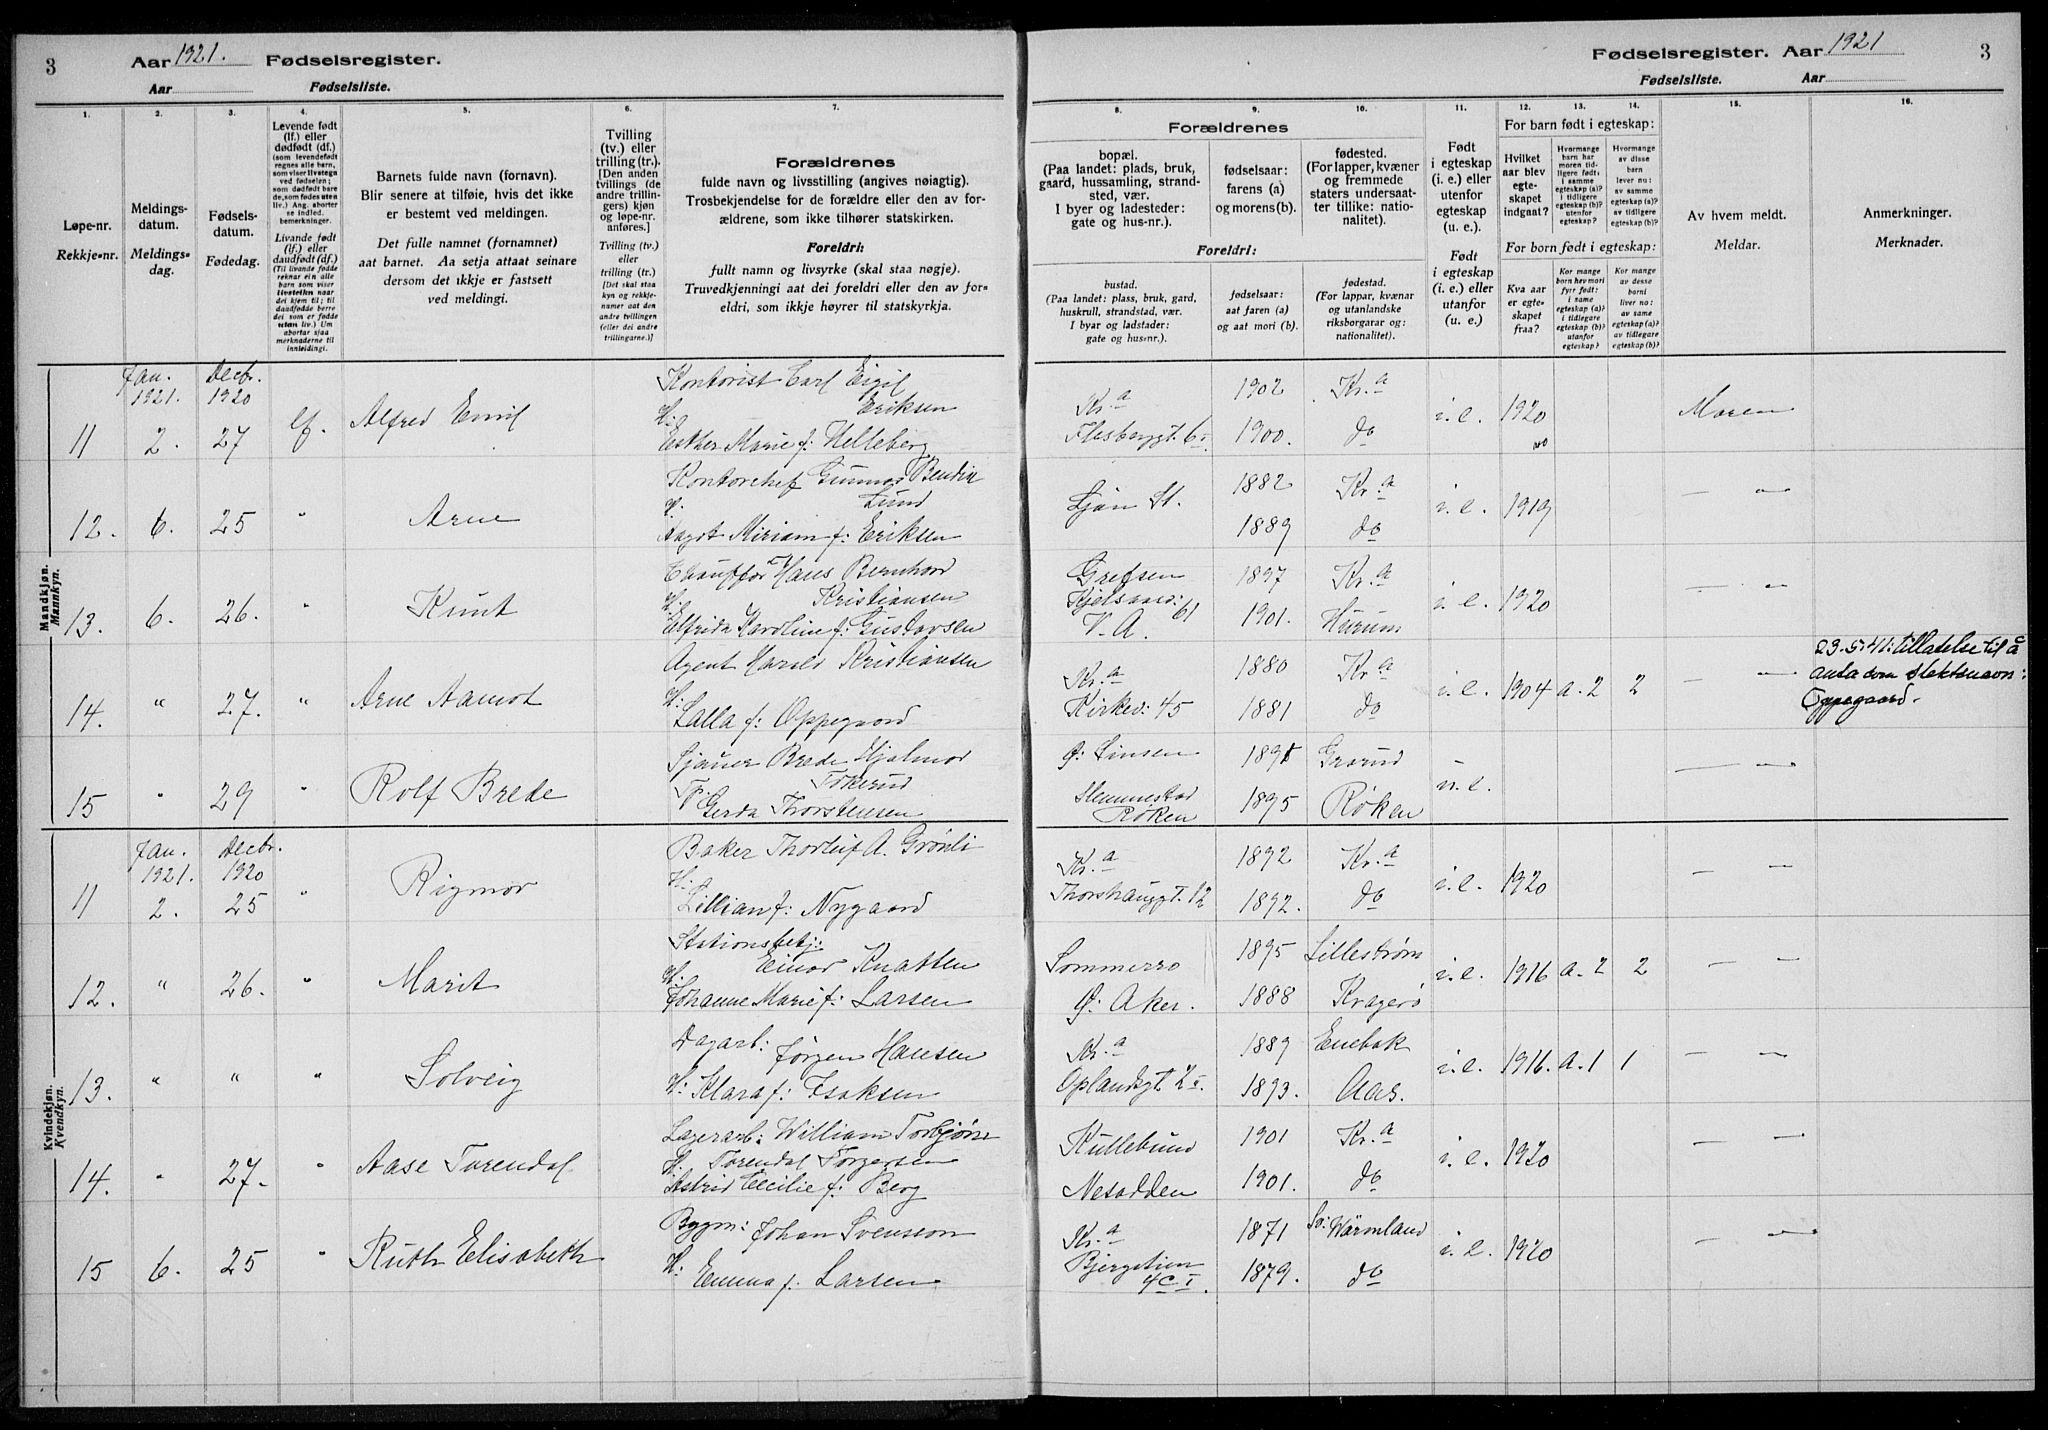 3 Aar 1921. Fødselsregister.
Aar Fødselsliste.
Fødselsregister. Aar 1921 3
Fødselsliste. Aar
1. 2. 3. 4. 5. 6. 7.
Løpe-nr.
Rekkje-nr.
Meldings-
datum.
Meldings-
dag.
Fødsels-
datum.
Fødedag.
Levende født
(lf.) eller
dødfødt (df.)
(som levendefødt
regnes alle barn,
som viser livstegn
ved fødselen;
som dødfødt bare
de, som fødes uten
liv.) Ang. aborter
se indled.
bemerkninger.
Livande født
(lf.) eller
daudfødt (df.)
(Til livande fødde
reknar ein alle
barn som viser
livsteikn naar
dei kjem til; til
daadfødde berre
dei som er fødde
utan liv.) Um
abortar sjaa
merknaderne til
innleidingi.
Barnets fulde navn (fornavn).
Blir senere at tilføie, hvis det ikke
er bestemt ved meldingen.
Det fulle namnet (fornamnet)
aat barnet. Aa setja attaat seinare
dersom det ikkje er fastsett
ved meldingi.
Tvilling
(tv.) eller
trilling (tr.).
[Den anden
tvillings (de
andre trillin-
gers) kjøn
og løpe-nr.
anføres.]
Tvilling (tv.)
eller
trilling (tr.)
[Det skal staa
kyn og rekkje-
nummer aat den
andre tvillingen
(eller dei andre
trillingarne.)]
Forældrenes
fulde navn og livsstilling (angives nøiagtig).
Trosbekjendelse for de forældre eller den av for-
ældrene, som ikke tilhører statskirken.
Foreldri:
fullt namn og livsyrke (skal staa nøgje).
Truvedkjenningi aat dei foreldri eller den av for-
eldri, som ikkje høyrer til statskyrkja.
8. 9. 10. 11. 12. 13. 14. 15. 16.
Forældrenes
bopæl.
(Paa landet: plads, bruk,
gaard, hussamling, strand-
sted, vær.
I byer og ladesteder:
gate og hus-nr.).
fødselsaar:
farens (a)
og morens (b).
fødested.
(For lapper, kvæner
og fremmede
staters undersaat-
ter tillike: natio-
nalitet).
Foreldri:
bustad.
(Paa landet: plass, bruk, gard,
huskrull, strandstad, vær.
I byar og ladstader:
gate og hus-nr.).
fødselsaar:
aat faren (a)
og aat mori (b).
fødestad.
(For lappar, kvænar
og utanlandske
riksborgarar og:
nationalitet).
Født
i egteskap
(i. e.) eller
utenfor
egteskap
(u. e.).
Født
i egteskap
(i. e.) eller
utanfor
(u. e.).
For barn født i egteskap:
Hvilket
aar blev
egte-
skapet
indgaat?
Hvormange
barn har
moren tid-
ligere født,
i samme
egteskap (a)?
i tidligere
egteskap (b)?
utenfor
egteskap (c)?
Hvormange
av disse
barn
lever nu:
av samme
egteskap (a)?
av tidligere
egteskap (b)?
For born født i egteskap:
Kva aar
er egte-
skapet
fraa?
Kor mange
born hev mori
fyrr født:
i same
egteskap (a)?
i tidlegare
egteskap (b)?
utanfor
egteskap?
Kor mange
av desse
borni
liver no:
av same
egteskap (a)?
av tidlegare
egteskap (b)?
Av hvem meldt.
Meldar.
Anmerkninger.
Merknader.
Mandkjøn.
Mannkyn.
Jan. 1921. Decbr. 1920
11 2. 27 lf. Alfred Emil
Kontorist Carl Eigil
Eriksen
H:
Esther Marie f: Helleberg
Kr.a 1902 Kr.a i.e. 1920 Moren
Flesberggt. 6 1900. do
12. 6. 25 " Arne
Kontorchef Gunnar Bendix
Lund
H.
Aagot Miriam f: Eriksen
Ljan St. 1882 Kr.a i.e. 1919 — "
1889 do
13. 6. 26. " Knut
Chauffør Hans Bernhard
H: Kristiansen
Elfrida Karoline f: Gustavsen
Grefsen 1897 Kr.a i.e. 1920 — "
Kjelsaasv: 61
V. A. 1901. Hurum
14. " 27. " Arne Aamot
Agent Harald Kristiansen
H:
Lalla f: Oppegaard
Kr.a 1880 Kr.a i.e. 1904 a. 2 2 — "
Kirkev: 45 1881 do
23-5-41: tillatelse til å
anta som slektsnavn:
Oppegaard.
15 " 29 " Rolf Brede
Sjauer Brede Hjalmar
Fokerud
P. Gerda Thorstensen
Ø: Sinsen 1891 Grorud u.e. — "
Slemmestad
Røken 1895 Røken
Kvindekjøn.
Kvendkyn.
Jan. 1921. Decbr. 1920
11 2. 25 " Rigmor
Baker Thorleif A. Grønli
H:
Lillian f: Nygaard
Kr.a 1892 Kr.a i.e. 1920 — "
Thorshauggt. 12 1892. do
12. " 26. " Marit
Stationsbetj:
Einar Knatten
H.
Johanne Marie f: Larsen
Sommerro 1895 Lillestrøm i.e. 1916 a. 2 2 — "
Ø: Aker. 1888 Kragerø
13. " " " Solveig
Dagarb: Jørgen Hansen
H: Klara f: Isaksen
Kr.a 1889 Enebak i.e. 1916. a. 1 1 — "
Oplandsgt. 2 I 1893. Aas.
14. " 27. " Aase Torendal
Lagerarb: William Torbjørn
H. Torendal Torgersen
Astrid Cecilie f: Berg
Kullebund 1901 Kr.a i.e. 1920 — "
Nesodden 1901. do
15 6. 25 " Ruth Elisabeth
Bygm: Johan Svensson
H:
Emma f. Larsen
Kr.a 1871 Sv: Wärmland i.e. 1920 — "
Bjergstien
4c I. 1879. do